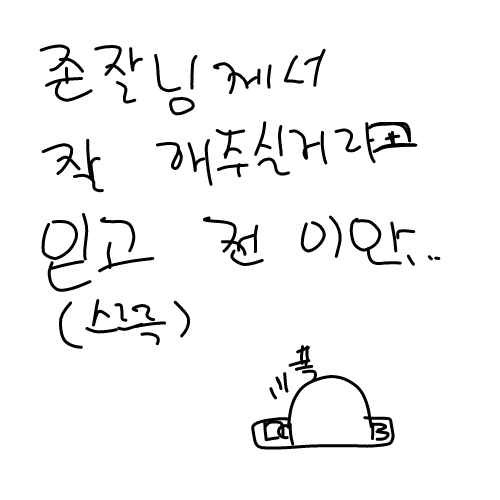 존잘님께서
잘 해주실거라
믿고 전 이만...
(스륵)